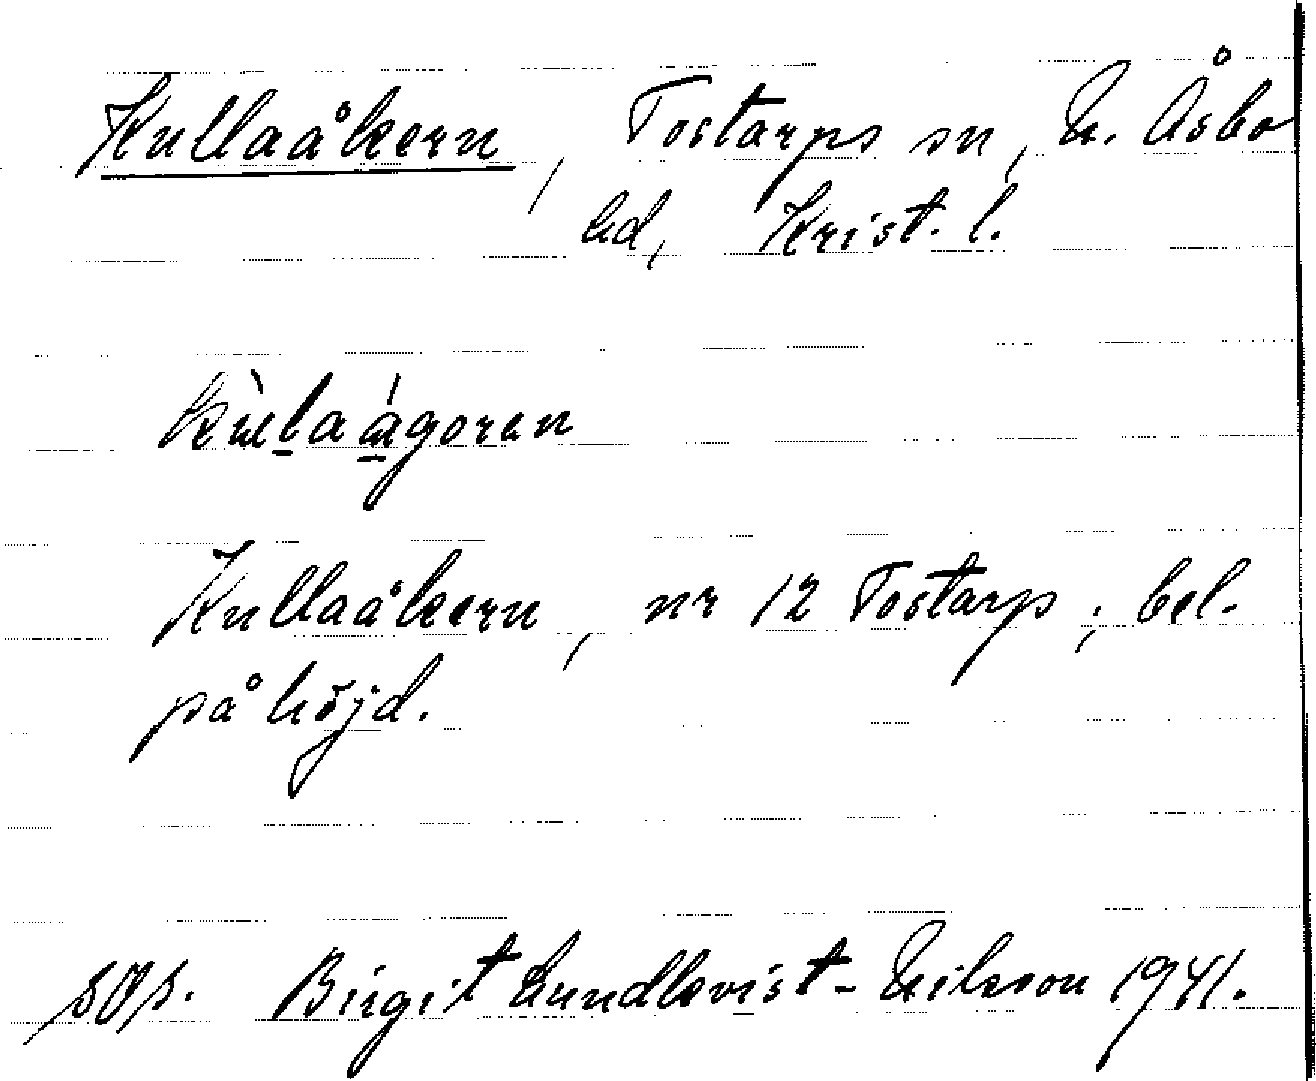 Kullaåkern, Tostarps sn, N. Åsbo
hd, Krist. l.
Kullaåkern, nr 12 Tostarp; bel.
på höjd.
Birgit Lundkvist-Nilsson 1941.